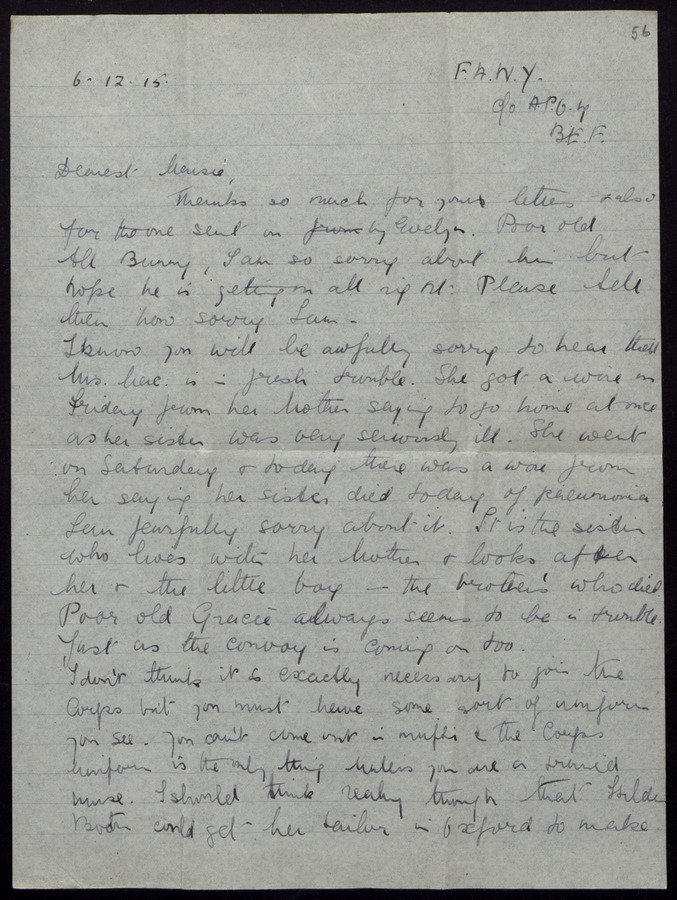 56
6-12-15.
F.A.N.Y.
c/o A.P.O. 4
B.E.F.
Dearest
Thanks so much for your letter & also
for the one sent on from by Evelyn. Poor old
Bunny, I am so sorry about him but
hope he is getting on all right. Please tell
them how sorry I am -
I know you will be awfully sorry to hear that
Mrs. Mac. is in fresh trouble. She got a wire on
Friday from her Mother saying to go home at once
as her sister was very seriously ill. She went
on Saturday & today there was a wire from
her saying her sister died today of pneumonia
I am fearfully sorry about it. It is the sister
who lives with her Mother & looks after
her & the little boy - the brother's who died.
Poor old Gracie always seems to be in trouble.
Just as the convoy is coming on too.
I don't think it is exactly necessary to join the
Corps but you must have some sort of uniform
you see. You can't come out in mufti & the Corps
uniform is the only thing unless you are a trained
nurse. I should think really though that Hilda
Booth could get her tailor in Oxford to make